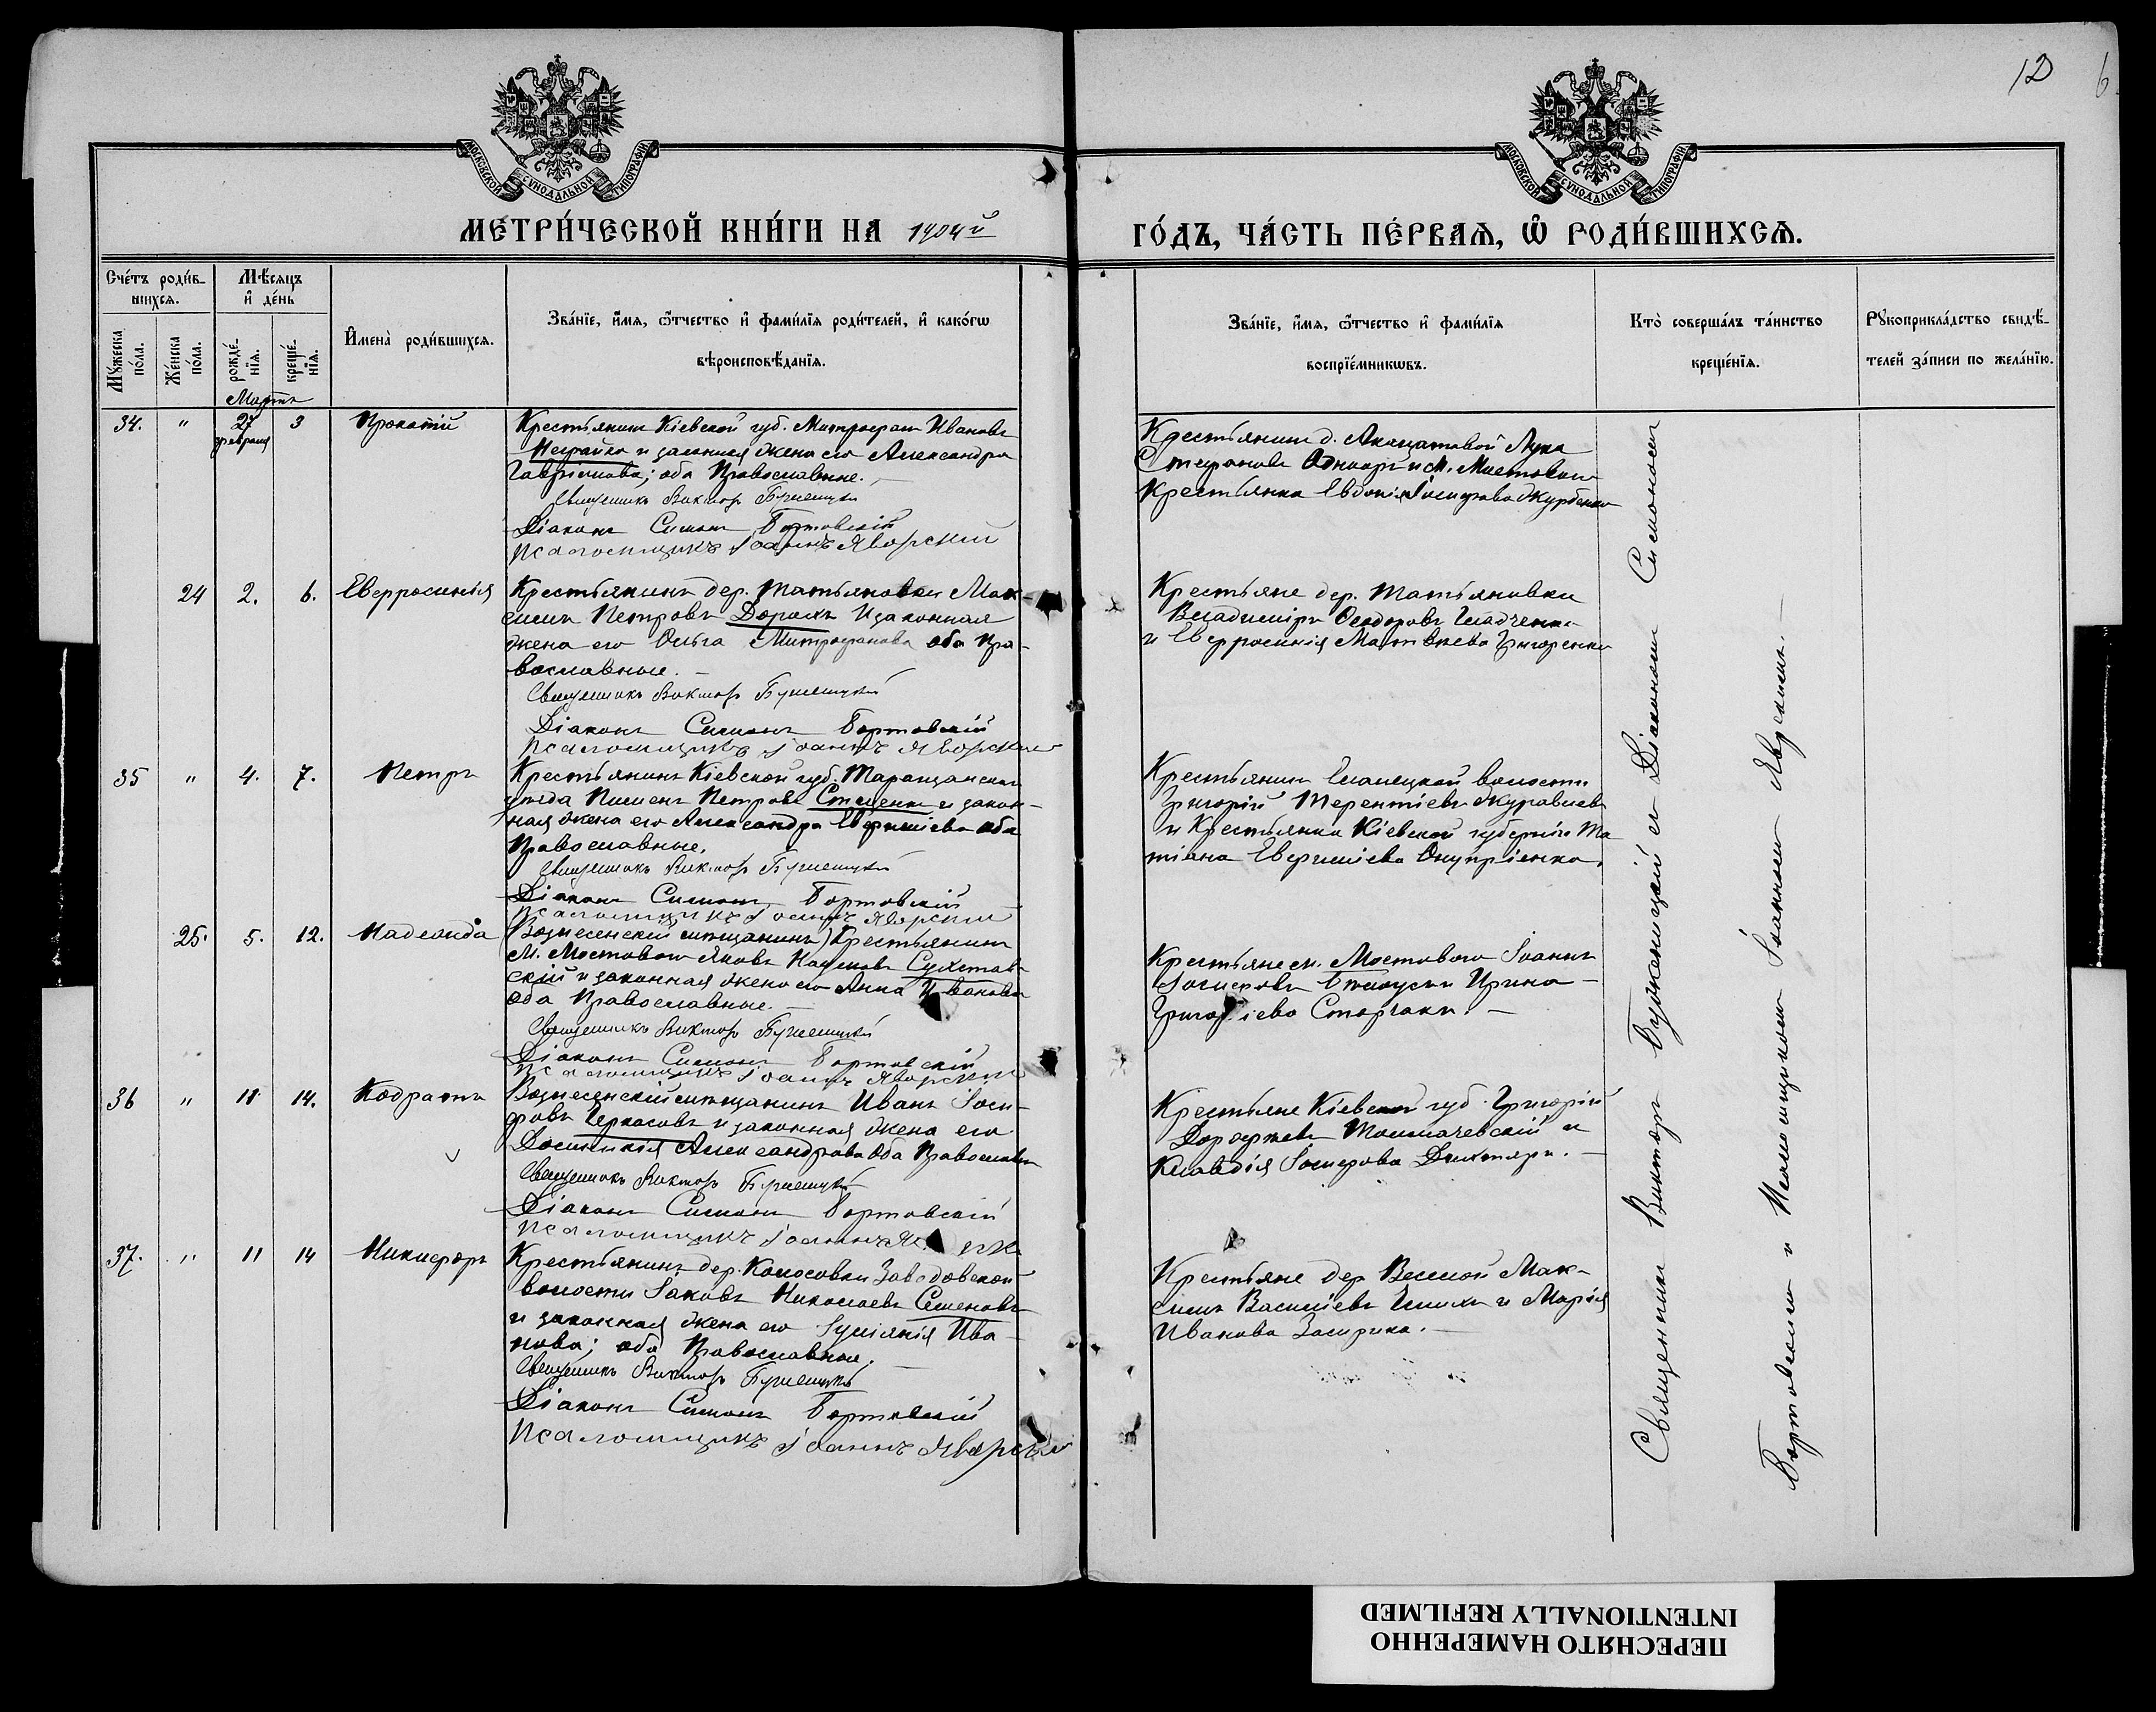 12
6
МОСКОВСКОЙ СѴНОДАЛЬНОЙ ТИПОГРАФІИ
МОСКОВСКОЙ СѴНОДАЛЬНОЙ ТИПОГРАФІИ
МЕТРИ́ЧЕСКОЙ КНИ́ГИ НА 1904й
ГО́ДЪ, ЧА́СТЬ ПЕ́РВАѦ, Ѡ҆ РОДИ́ВШИХСѦ.
Сче́тъ роди́в-
шихсѧ.
Мꙋ́жеска
по́ла.
Же́нска
по́ла.
Мѣ́сяцъ
и҆ де́нь
рожде́-
нїѧ.
креще́-
нїѧ.
И҆мена̀ роди́вшихсѧ.
Зва́нїе, и҆́мѧ, ѻ҆́тчество и҆ фами́лїѧ роди́телей, и҆ како́гѡ
вѣроисповѣ́данїѧ.
Зва́нїе, и҆́мѧ, ѻ҆́тчество и҆ фами́лїѧ
воспрїе́мникѡвъ.
Кто̀ соверша́лъ та́инство
креще́нїѧ.
Рꙋкоприкла́дство свидѣ́-
телей за́писи по жела́нїю.
Мартъ
34. " 27 февраля 3 Прокопій
Крестьянинъ Кіевской губ. Митрофанъ Ивановъ
Неграйко и законная жена его Александра
Гавріилова; оба Православные.
Священникъ Викторъ Буженицкій
Діаконъ Симонъ Бортовскій
Псаломщикъ Іоаннъ Яворскій
Крестьянинъ д. Акацатовой Лука
Стефановъ и м. Мостового
Крестьянка Евдокія Іосифова Журбенко
24 2. 6. Евфросинія
Крестьянинъ дер. Татьяновки Мак-
симъ Петровъ Дорошъ и законная
жена его Ольга Митрофанова оба Пра-
вославные.
Священникъ Викторъ Буженицкій
Діаконъ Симонъ Бортовскій
Псаломщикъ Іоаннъ Яворскій
Крестьяне дер. Татьяновки
Владиміръ Ѳеодоровъ Гладченко
и Евфросинія Матвѣева Григоренко
35 " 4. 7. Петръ
Крестьянинъ Кіевской губ. Таращанскаго
уѣзда Пименъ Петровъ Стеценко и закон-
ная жена его Александра Евфиміева оба
Православные.
Священникъ Викторъ Буженицкій
Діаконъ Симонъ Бортовскій
Псаломщикъ Іоаннъ Яворскій
Крестьянинъ Еланецкой волости
Григорій Терентіевъ Журавлевъ
и Крестьянка Кіевской губерніи Та
тіана Евфиміева Онупріенко.
25. 5. 12. Надежда
(Вознесенскій мѣщанинъ) Крестьянинъ
м. Мостового Яковъ Наумовъ Сухетав-
скій и законная жена его Анна Иванова
оба Православные.
Священникъ Викторъ Буженицкій
Діаконъ Симонъ Бортовскій
Псаломщикъ Іоаннъ Яворскій
Крестьяне м. Мостового Іоаннъ
Іосифовъ и Ирина
Григоріева
36 " 11 14. Кодратъ
Вознесенскій мѣщанинъ Иванъ Іоси-
фовъ Черкасовъ и законная жена его
Домникія Александрова оба Православн
Священникъ Викторъ Буженицкій
Діаконъ Симонъ Бортовскій
Псаломщикъ Іоаннъ
Крестьяне Кіевской губ. Григорій
Дорофеевъ Толмачевскій и
Клавдія Іосифова Дихтярь.
37. " 11 14 Никифоръ
Крестьянинъ дер. Колосовки Заводовской
волости Іаковъ Николаевъ Семеновъ
и законная жена его Іуліанія Ива-
нова; оба Православные.
Священникъ Викторъ Буженицкій
Діаконъ Симонъ Бортовскій
Псаломщикъ Іоаннъ Яворскій
Крестьяне дер Веселой Мак-
симъ Василіевъ и Марія
Иванова
Священникъ Викторъ Буженицкій съ Діакономъ Симономъ
Бортовскимъ и Псаломщикомъ Іоанномъ Яворскимъ.
ПЕРЕСНЯТО НАМЕРЕННО
INTENTIONALLY REFILMED